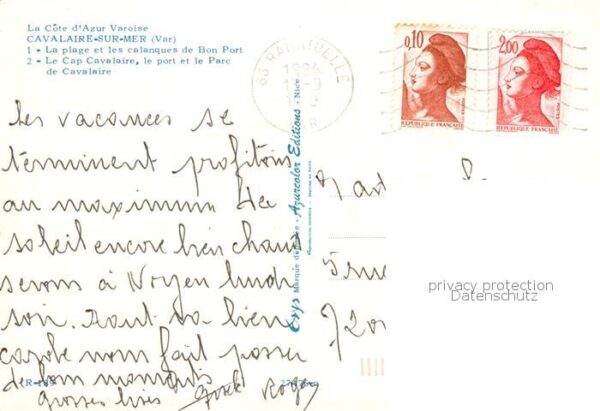 La Côte d'Azur Varoise
CAVALAIRE-SUR-MER (Var)
1 - La plage et les calanques de Bon Port
2 - Le Cap Cavalaire, le port et le Parc
de Cavalaire
83 RAMATUELLE
0,10
REPUBLIQUE FRANÇAISE
2,00
REPUBLIQUE FRANÇAISE
Les vacances se
terminent profitons
au maximum de
soleil encore bien chaud
serons à Noyen lundi
soir. Tout va bien
nous fait passer
de bons moments
grosses bises Roger
Azurcolor Editions - Nice
privacy protection
Datenschutz